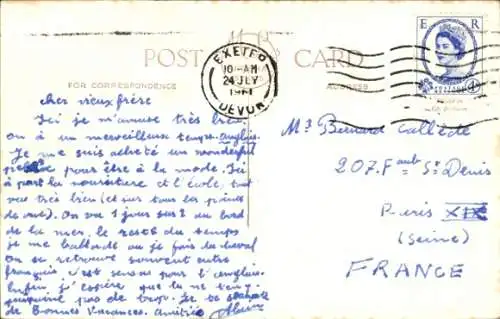 POST CARD
FOR CORRESPONDENCE
ADDRESS
EXETER
10-AM
24 JLY
1961
DEVON
E R
cher vieux frère
Ici je m'amuse très bien
on a un merveilleux temps anglais.
Je me suis acheté un wonderful
pour être à la mode. Ici
à part la nourriture et l'école, tout
va très bien (et sur tous les points
de vue). On va 1 jour sur 2 au bord
de la mer, le reste du temps
je me ballade ou je fais du cheval
on se retrouve souvent entre
français, c'est sensas pour l'anglais.
Enfin j'espère que tu ne t'en
pas de trop. Je te souhaite
de Bonnes Vacances. Amitiés Alain
Mr Bernard Callède
207. Faub St Denis
Paris XIX
(Seine)
FRANCE